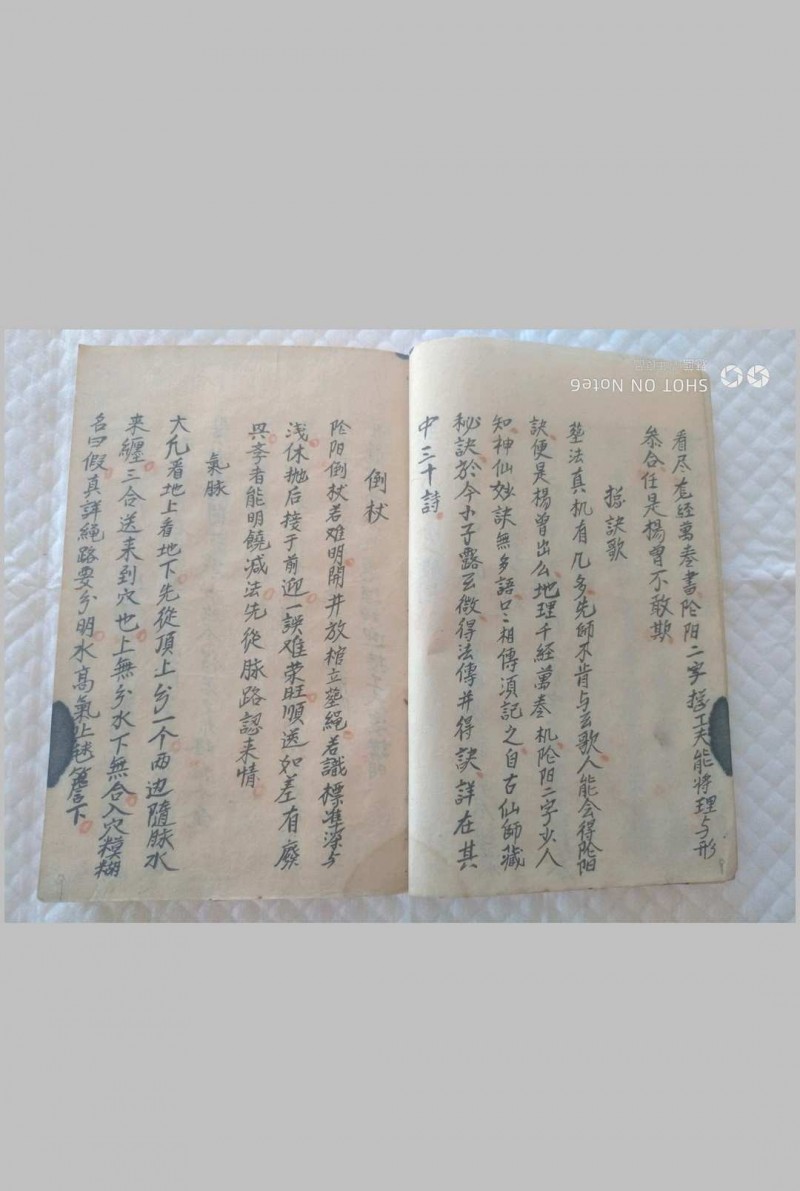 看尽葬经萬叁書阴阳二字揔工夫能将理与形
叅合任是楊曾不敢欺
揔訣歌
塟法真机有几多先師不肯与玄歌人能会得阴阳
訣便是楊曾出么地理千經萬叁机阴阳二字少人
知神仙妙訣無多語口〻相傳湏記之自古仙師藏
秘訣於今小子露玄微得法傳并得訣詳在其
中三十詩
倒杖
阴阳倒杖若难明開井放棺立塟䋲若識標准深与
浅休抛后接于前迎一誤难荣旺順送如差有廢
㒷孝者能明饒减法先從脉路認来情
氣脉
大凢看地上看地下先從頂上分一个两边隨脉水
来纏三合送来到穴也上無分水下無合入穴糢糊
名曰假真詳䋲路要分明水高氣止毬簷下
SHOT ON Note6